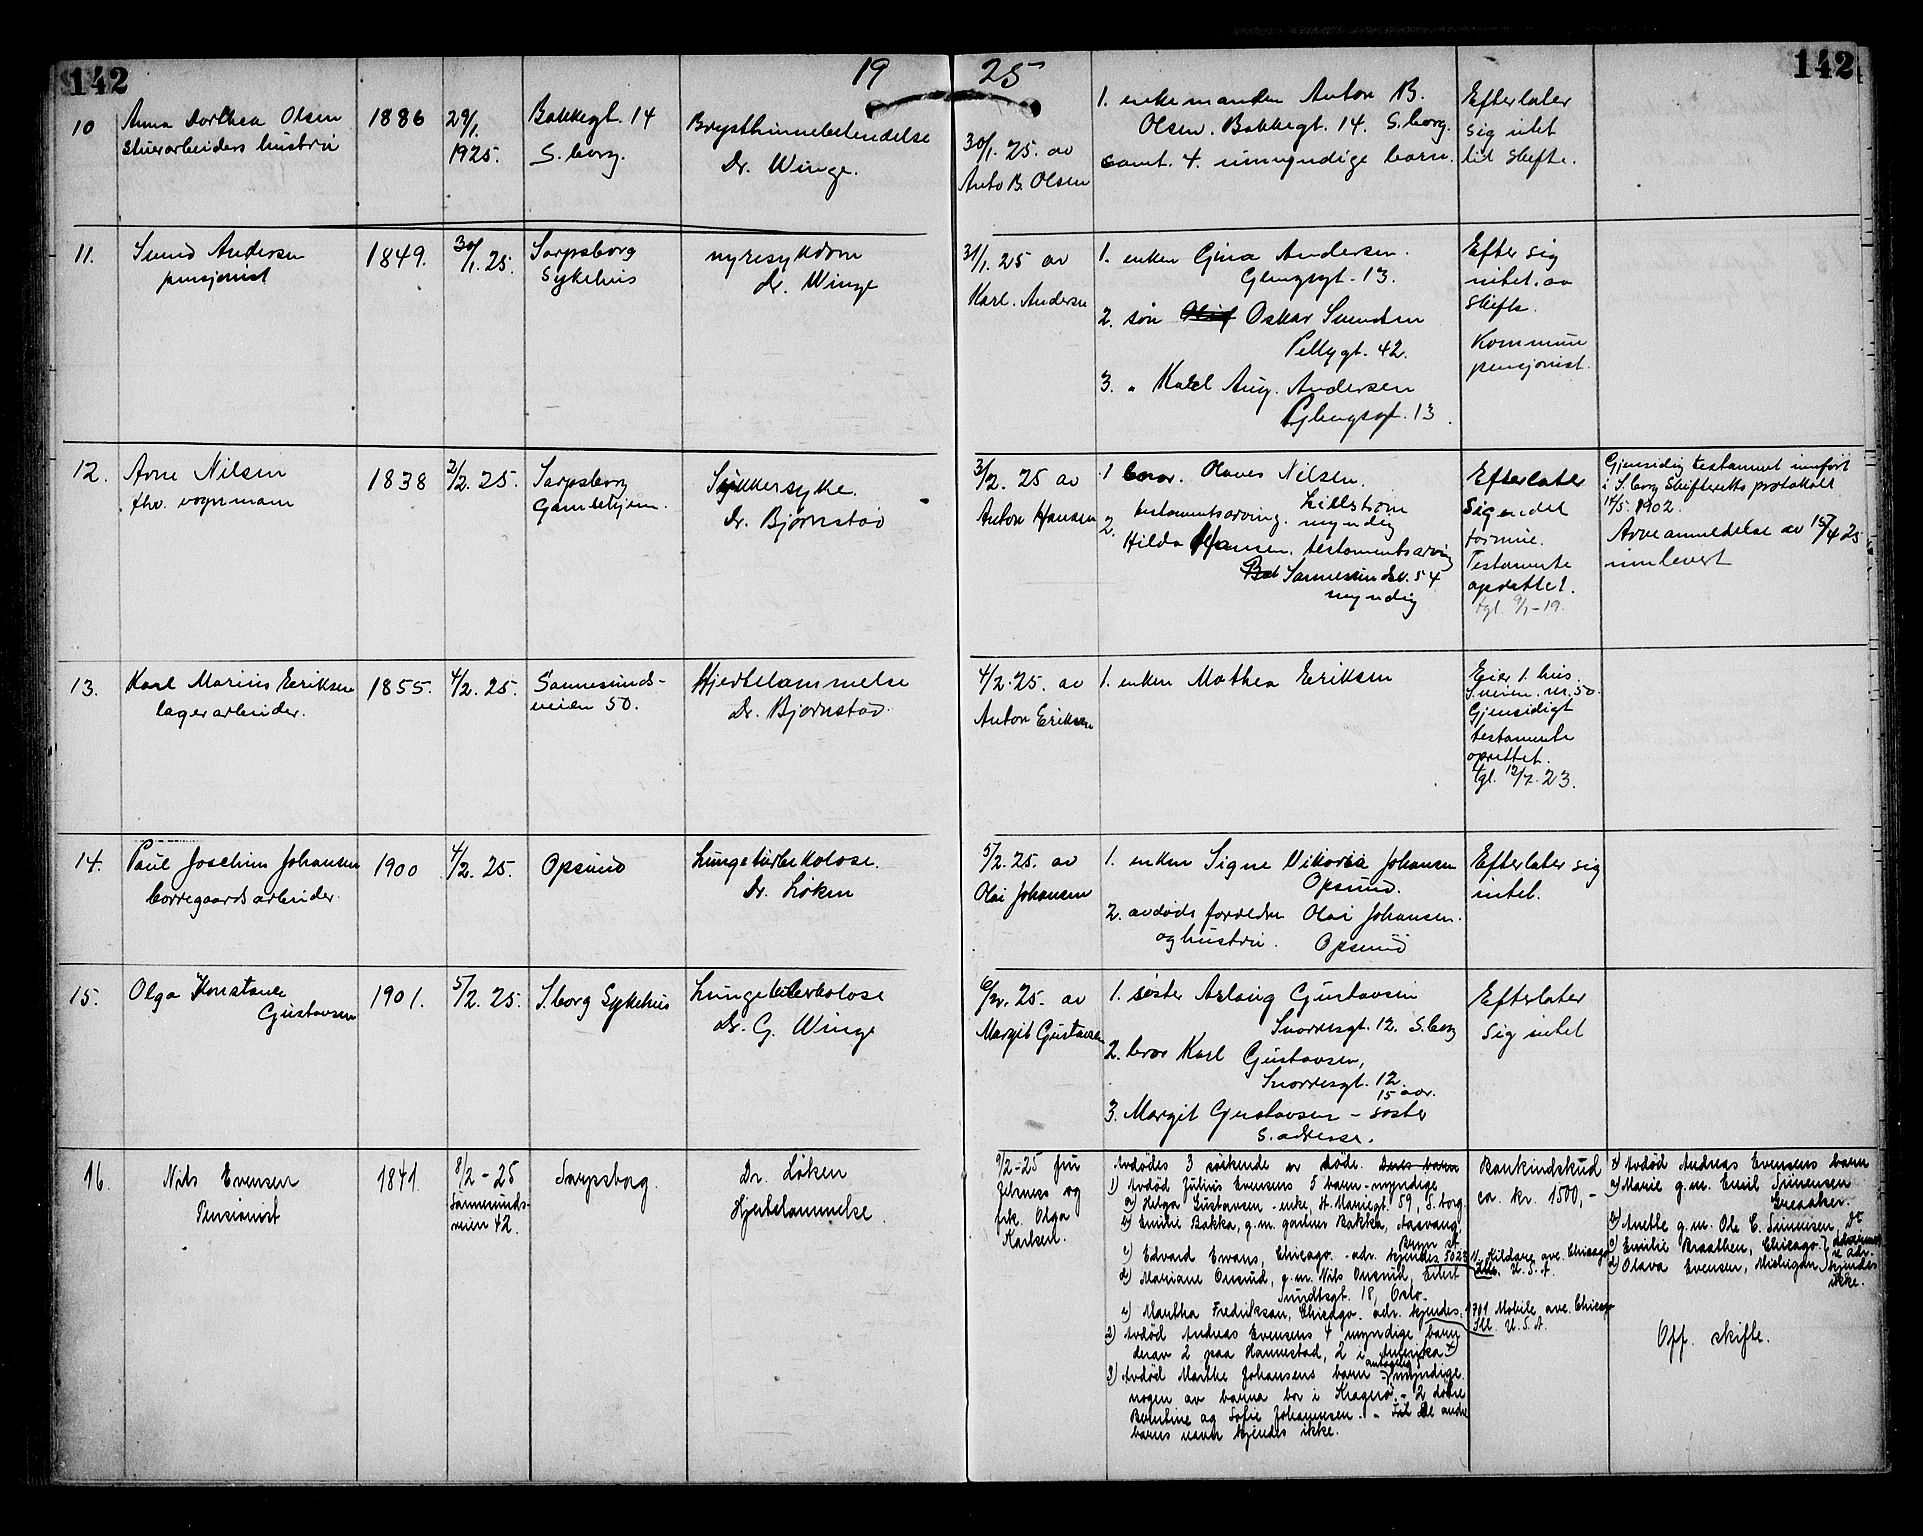 142
19 25
142
10
Anna Dorthea Olsen
stuerarbeiders hustru
1886
29/1.
1925.
Bakkegt. 14
S.borg.
Brysthinnebetendelse
Dr. Winge.
30/1. 25. av
Anto B. Olsen
1. enkemanden Anton B.
Olsen. Bakkegt. 14. S.borg.
samt. 4. umyndige barn.
Efterlater
sig intet
til skifte.
11.
Svend Andersen
pensjonist
1849.
30/1. 25.
Sarpsborg
Sykehus
nyresykdom
Dr. Winge
31/1. 25 av
Karl. Andersen
1. enken Gina Andersen.
Glengsgt. 13.
2. søn Oskar Svendsen
Pellygt. 42.
3. " Karl Aug. Andersen
Glengsgt. 13.
Efter sig
intet. av
skifte.
Kommune
pensjonist.
12.
Arne Nilsen
fhv. vognmann
1838
2/2. 25.
Sarpsborg
Gamlehjem.
Sukkersyke.
Dr. Bjørnstad
3/2. 25 av
Anton Hansen
1 bror. Olaves Nilsen.
Lillestrøm
testamentsarving. myndig
2.
Hilda Hansen. testamentsarving
Sannesundsv. 54
myndig
Efterlater
sig endel
formue.
Testamente
oprettet.
tgl. 9/1-19.
Gjensidig testament innført
i S.borg Skifteretts protokoll
14/5. 1902.
Arveanmeldelse av 15/4 25
innlevert
13.
Karl Marius Eriksen
lagerarbeider.
1855.
4/2. 25.
Sannesunds-
veien 50.
Hjertelammelse
Dr. Bjørnstad.
4/2. 25. av
Anton Eriksen
1. enken Mathea Eriksen
Eier 1. hus.
S.veien. nr. 50.
Gjensidigt
testamente
oprettet.
tgl. 12/7. 23.
14.
Paul Joachim Johansen
borregaardsarbeider.
1900
4/2. 25.
Opsund
Lungetuberkolose.
Dr. Løken
5/2. 25. av
Olai Johansen
1. enken Signe Viktoria Johansen
Opsund.
2. avdøds foreldre Olai Johansen.
og hustru. Opsund
Efterlater sig
intet.
15.
Olga Konstance
Gustavsen
1901.
5/2. 25.
S.borg Sykehus
Lungetuberkolose
Dr. G. Winge
6/2. 25. av
Margit Gustavsen
1. søster Aslaug Gustavsen
Snorresgt. 12. S.borg
2. bror Karl Gustavsen,
Snorresgt. 12.
15 aar.
3. Margit Gustavsen - søster
s. adresse.
Efterlater
sig intet
16.
Nils Evensen
Pensionist
1841.
8/2 - 25
Sannesunds-
veien 42.
Sarpsborg.
Dr. Løken
Hjertelammelse.
9/2-25 fru
Jelsness og
frk. Olga
Karlsen.
Avdødes 3 søskende er døde. Deres barn
1) Avdød Julius Evensens 5 barn - myndige
a) Helga Gustavsen - enke, St. Mariegt. 59, S.borg
b) Emilie Bakka, g.m. gartner Bakka, Aasvang
Bryn st.
c) Edvard Ewans, Chicago. - adr. kjendes 5023 N. Kildare ave. Chicago
Ills. U.S.A.
d) Mariane Onsrud, g.m. Nils Onsrud, Eilert
Sundtsgt. 18, Oslo.
e) Martha Fredriksen, Chicago. adr. kjendes. 1701 Mobile ave. Chicago
Ill. U.S.A.
2) Avdød Andreas Evensens 4 myndige barn
derav 2 paa Hannestad, 2 i Amerika x)
3) Avdød Marthe Johansens barn antagelig myndige.
nogen av barna bor i Kragerø. - 2 døtre
Berntine og Sofie Johannesen. - De andre
barns navn kjendes ikke.
Bankindskud
ca. kr. 1500,-
x) Avdød Andreas Evensens barn
a) Marie g.m. Emil Simensen
Greaaker.
b) Anette g.m. Ole C. Simensen, do
c) Emilie Braathen, Chicago.
d) Olava Evensen, Michigan
adr.
kjendes
ikke.
Off. skifte.